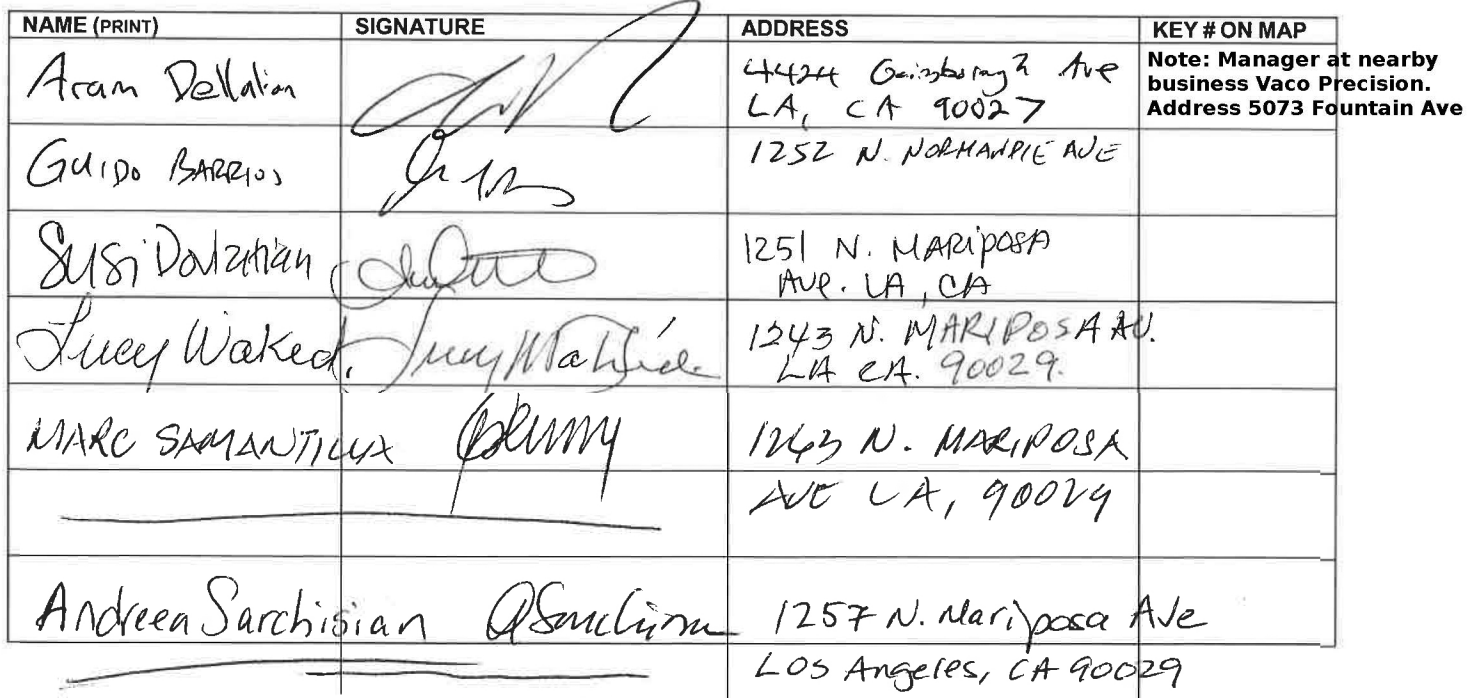 NAME (PRINT) SIGNATURE ADDRESS KEY # ON MAP
Aram Dellalian 4424 Gainsborough Ave
LA, CA 90027
Note: Manager at nearby
business Vaco Precision.
Address 5073 Fountain Ave
GUIDO BARRIOS 1252 N. NORMANDIE AVE
Susi 1251 N. MARIPOSA
Ave. LA, CA
Lucy Waked. Lucy 1243 N. MARIPOSA AV.
LA CA. 90029.
MARC SAMANTILLA 1263 N. MARIPOSA
AVE LA, 90029
Andreea Sarchisian 1257 N. Mariposa Ave
Los Angeles, CA 90029